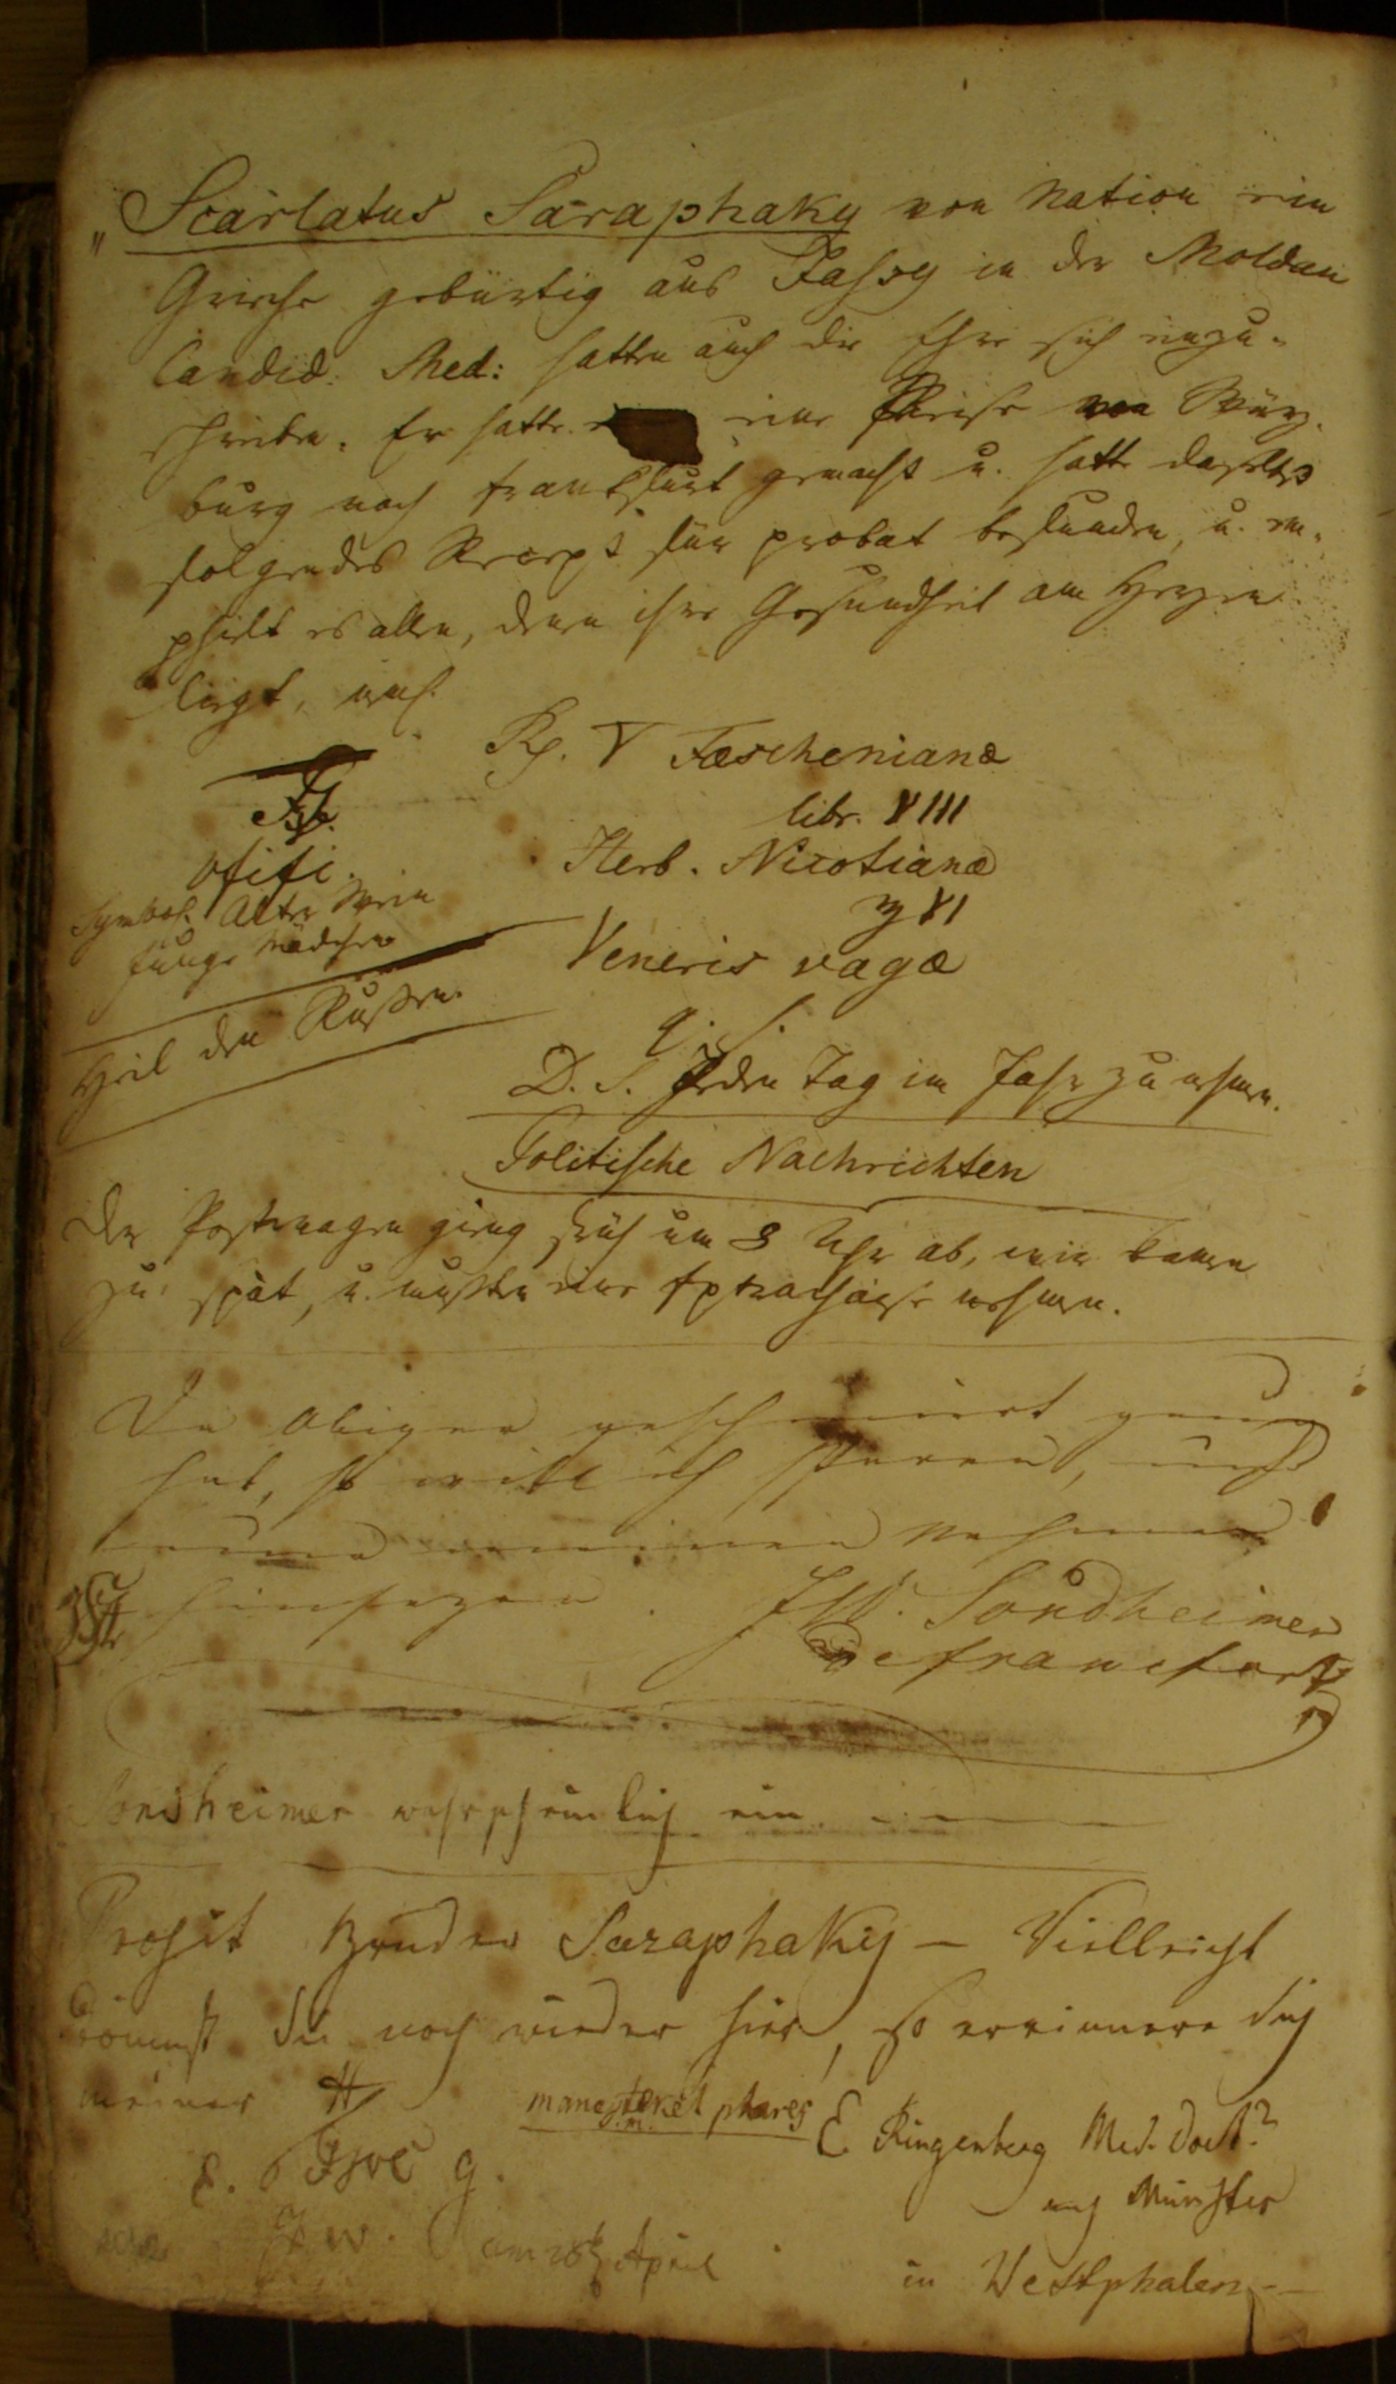 " Scarlatus Saraphaky von Nation ein
Grieche gebürtig aus Jassy in der Moldau
Candid. Med: hatten auch die Ehre sich einzu-
schreiben. Er hatte eine Reise von Würz-
burg nach Frankfurt gemacht u. hatte daselbst
folgendes Recept für probat befunden, u. em-
phielt es allen, denen ihre Gesundheit am Herzen
liegt,
Rp. V Faescheniana
libr. VIII
Herb. Nicotianae
VI
Veneris vagae
q. S.
D. S. Jeden Tag im Jahr zu nehmen.
vfifi.
Symbol. Alter Wein
junge Mädchen
Heil den Russen.
Politische Nachrichten
Der Postwagen gieng früh um 8 Uhr ab, wir kamen
zu spät, u. mußten eine Extrachaise nehmen.
Da Obiger geschmiert genug
hat, so will ich sparen, und
meinen Nahmen
hinsezen.
Sondheimer
de francfort
Sondheimer wahrscheinlich ein
Prosit Bruder Saraphaky – Vielleicht
kömmst du noch wieder hier, so errinnere dich
meiner
mane, tekel phares
E Ringenberg Med. Doct.
aus Münster
in Westphalen –
am 28t April